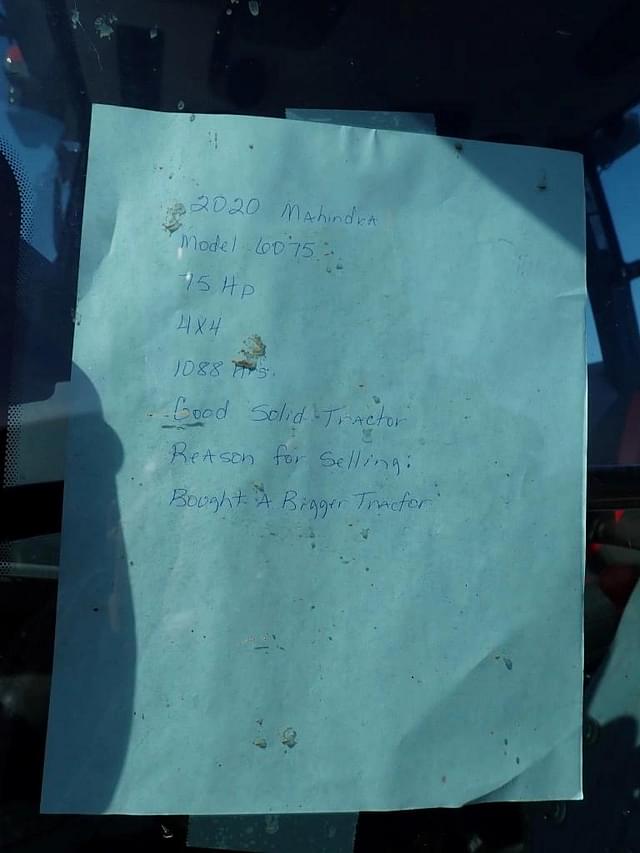 2020 Mahindra
Model 6075
75 Hp
4x4
1088 Hrs.
Good Solid Tractor
Reason for Selling:
Bought A Bigger Tractor